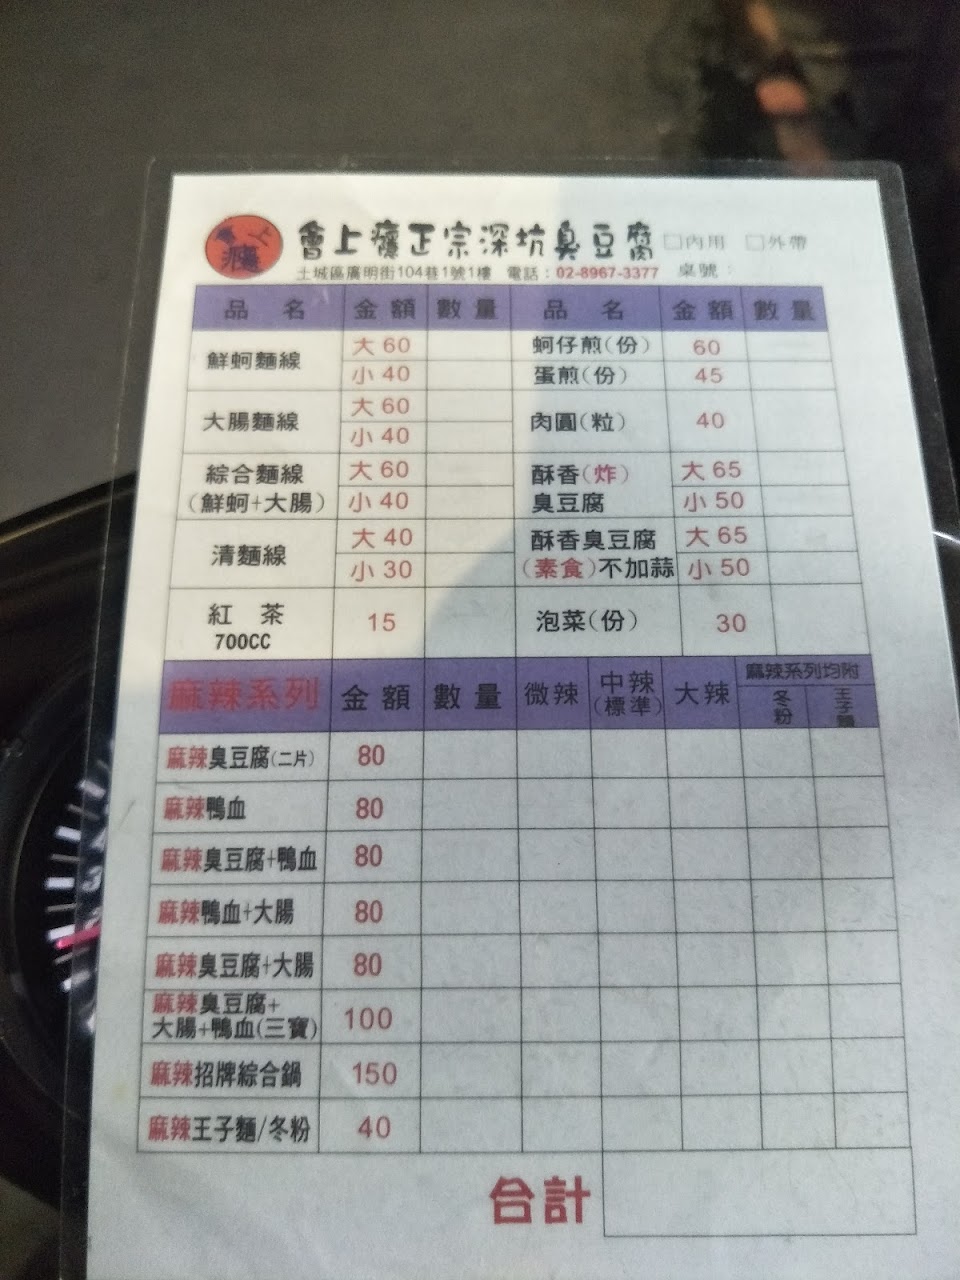 上癮
會上癮正宗深坑臭豆腐 □內用 □外帶
土城區廣明街104巷1號1樓 電話：02-8967-3377 桌號：
品名 金額 數量 品名 金額 數量
鮮蚵麵線 大 60 蚵仔煎(份) 60
小 40 蛋煎(份) 45
大腸麵線 大 60 肉圓(粒) 40
小 40
綜合麵線 大 60 酥香(炸) 大 65
(鮮蚵+大腸) 小 40 臭豆腐 小 50
清麵線 大 40 酥香臭豆腐 大 65
小 30 (素食)不加蒜 小 50
紅茶 15 泡菜(份) 30
700CC
麻辣系列 金額 數量 微辣 中辣(標準) 大辣 麻辣系列均附
冬粉 王子麵
麻辣臭豆腐(二片) 80
麻辣鴨血 80
麻辣臭豆腐+鴨血 80
麻辣鴨血+大腸 80
麻辣臭豆腐+大腸 80
麻辣臭豆腐+
大腸+鴨血(三寶) 100
麻辣招牌綜合鍋 150
麻辣王子麵/冬粉 40
合計